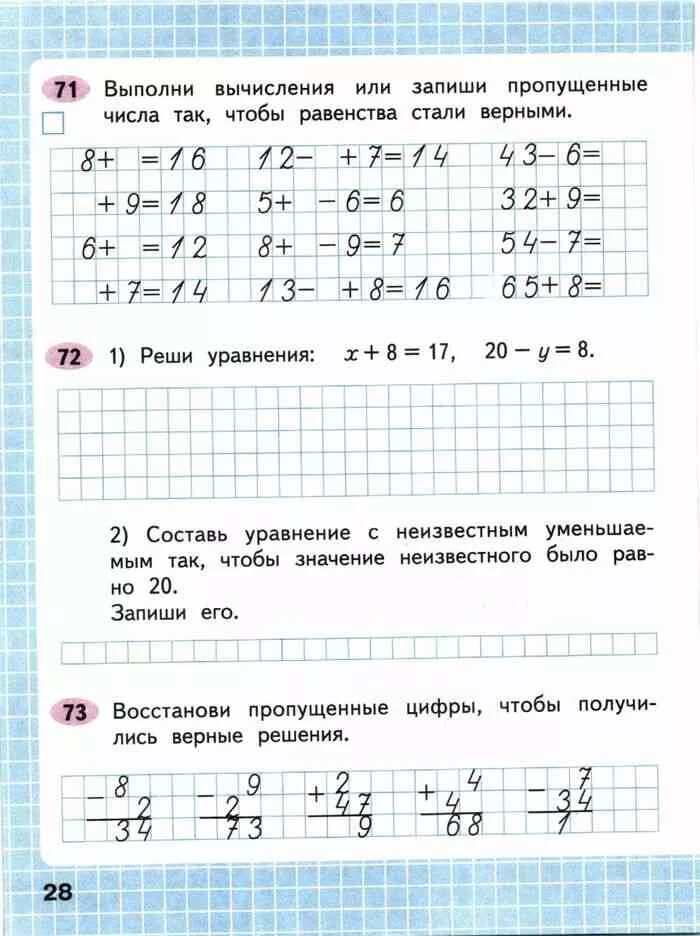 71 Выполни вычисления или запиши пропущенные
числа так, чтобы равенства стали верными.
8+ =16 12− +7=14 43−6=
+9=18 5+ −6=6 32+9=
6+ =12 8+ −9=7 54−7=
+7=14 13− +8=16 65+8=
72 1) Реши уравнения: x+8=17, 20−y=8.
2) Составь уравнение с неизвестным уменьшае-
мым так, чтобы значение неизвестного было рав-
но 20.
Запиши его.
73 Восстанови пропущенные цифры, чтобы получи-
лись верные решения.
− 8 − 9 + 2 + 4 − 7
2 2 47 4 34
34 73 9 68 1
28